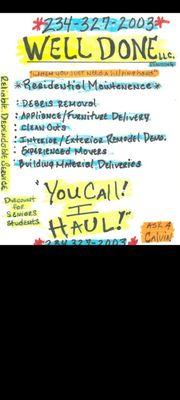 *234-327-2003*
WELL DONE LLC.
"WHEN YOU JUST NEED A HELPING HAND"
*Residential Maintenence*
: DEBRIS REMOVAL
: APPLIANCE/FURNITURE DELIVERY
: CLEAN OUTS
: INTERIOR/EXTERIOR REMODEL DEMO.
: EXPERIENCED MOVERS
: BUILDING MATERIAL DELIVERIES
Reliable Dependable Service
"YOU CALL!
I
HAUL!"
DISCOUNT
FOR
SENIORS
STUDENTS
ASK 4
CALVIN
*234-327-2003*